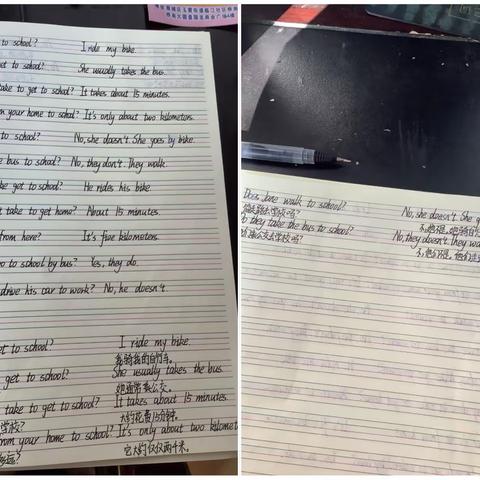 to school? I ride my bike.
get to school? She usually takes the bus.
take to get to school? It takes about 15 minutes.
from your home to school? It's only about two kilometers.
to school? No, she doesn't. She goes by bike.
bus to school? No, they don't. They walk.
get to school? He rides his bike
take to get home? About 15 minutes.
from here? It's five kilometers.
to school by bus? Yes, they do.
drive his car to work? No, he doesn't.
get to school? I ride my bike.
我骑我的自行车。
get to school? She usually takes the bus.
她通常乘公交。
take to get to school? It takes about 15 minutes.
学校? 大约花费15分钟。
from your home to school? It's only about two kilomet
它大约仅仅两千米。
Does Jane walk to school? No, she doesn't. She
they take the bus to school? No, they doesn't. they wa